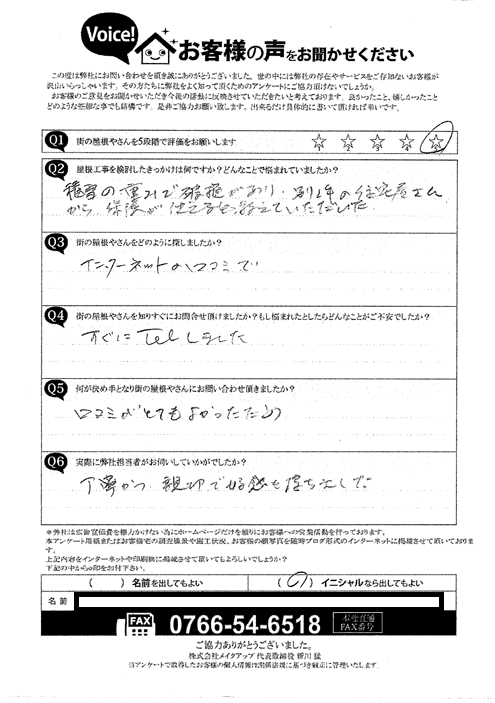 Voice!
お客様の声をお聞かせください
この度は弊社にお問い合わせを頂き誠にありがとうございました。世の中には弊社の存在やサービスをご存知ないお客様が
沢山いらっしゃいます。その方たちに弊社をよく知って頂くためのアンケートにご協力頂けないでしょうか。
お客様のご意見をお聞かせいただき今後の活動に反映させていただきたいと考えております。良かったこと、嬉しかったこと
どのような些細な事でも結構です。是非ご協力お願い致します。出来るだけ具体的に書いて頂ければ幸いです。
Q1 街の屋根やさんを5段階で評価をお願いします
1 2 3 4 5
Q2 屋根工事を検討したきっかけは何ですか?どんなことで悩まれていましたか?
積雪の重みで破損があり、別の
から 保険が使えると教えていただいた
Q3 街の屋根やさんをどのように探しましたか?
インターネットの口コミで
Q4 街の屋根やさんを知りすぐにお問合せ頂けましたか?もし悩まれたとしたらどんなことがご不安でしたか?
すぐに Telしました
Q5 何が決め手となり街の屋根やさんにお問い合わせ頂きましたか?
口コミがとてもよかったため
Q6 実際に弊社担当者がお伺いしていかがでしたか?
丁寧かつ 親切で好感を持ちました
※弊社は広告宣伝費を極力かけない為にホームページだけを頼りにお客様への営業活動を行っております。
本アンケート用紙またはお客様宅の調査風景や施工状況、お客様の顔写真を随時ブログ形式のインターネットに掲載させて頂いております。
上記内容をインターネットや印刷物に掲載させて頂いてもよろしいでしょうか?
下記の中から○印をお付下さい。
( ) 名前を出してもよい (○) イニシャルなら出してもよい
名前
FAX 0766-54-6518 本社直通 FAX番号
ご協力ありがとうございました。
株式会社メイクアップ 代表取締役 新川 猛
当アンケートで取得したお客様の個人情報は関係法規に基づき厳正に管理いたします。